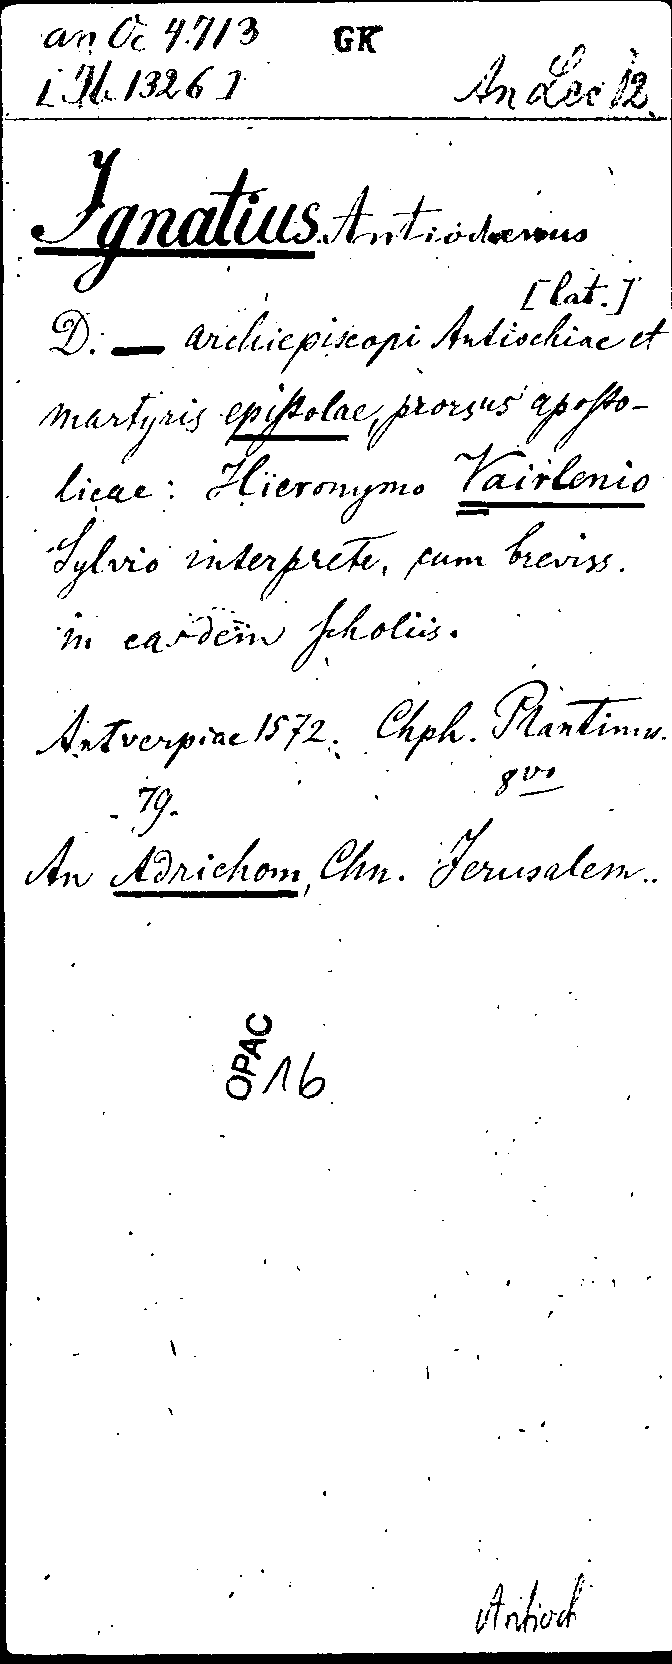 an Oc 4713 GK
[Il. 1326] An Lec 12.
Ignatius Antiochenus
[lat.]
D. — archiepiscopi Antiochiae et
martyris epistolae, prorsus aposto-
licae: Hieronymo Vairlenio
Sylvio interprete, cum breviss.
in easdem scholiis.
Antverpiae 1572. Chph. Plantinus.
79. 8vo
An Adrichom, Chn. Jerusalem..
OPAC 16
Antioch